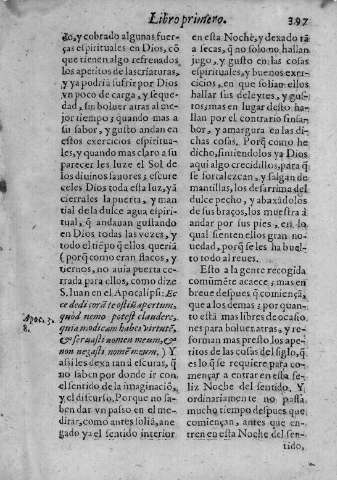 Libro primero. 397
do, y cobrado algunas fuer-
ças espirituales en Dios, cõ
que tienen algo refrenados
los apetitos de las criaturas,
y ya podrã sufrir por Dios
vn poco de carga, y seque-
dad, sin boluer atras al me-
jor tiempo; quando mas a
su sabor, y gusto andan en
estos exercicios espiritua-
les, y quando mas claro a su
parecer les luze el Sol de
los diuinos fauores; escure
celes Dios toda esta luz, yã
cierrales la puerta, y man-
tial de la dulce agua espiri-
tual, q̃ andauan gustando
en Dios todas las vezes, y
todo el tiẽpo q̃ ellos queriã
(porq̃ como eran flacos, y
tiernos, no auia puerta ce-
rrada para ellos, como dize
S. Iuan en el Apocalipsi: Ec
ce dedi corã te ostiũ apertum,
quòd nemo potest claudere,
quia modicam habes virtutẽ,
& seruasti uerbum meum, &
non negasti nomẽ meum.) Y
assi les dexa tan á escuras, q̃
no saben por donde ir con
el sentido de la imaginaciõ,
y el discurso. Porque no sa-
ben dar vn passo en el me-
dirar, como antes soliã, ane
gado ya el sentido interior
Apoc. 3.
8.
en esta Noche, y dexado tã
a secas, q̃ no solo no hallan
jugo, y gusto en las cosas
espirituales, y buenos exer-
cicios, en que solian ellos
hallar sus deleytes, y gus-
tos; mas en lugar desto ha-
llan por el contrario sinsa-
bor, y amargura en las di-
chas cosas. Porq̃ como he
dicho, sintiendolos ya Dios
aqui algo crecidillos, para q̃
se fortalezcan, y salgan de
mantillas, los desarrima del
dulce pecho, y abaxãdolos
de sus braços, los muestra à
andar por sus pies, en lo
qual sienten ellos gran no-
uedad, porq̃ se les ha buel-
to todo al reues.
Esto a la gente recogida
comũmẽte acaece; mas en
breue despues q̃ comiençã,
que a los demas; por quan-
to estã mas libres de ocasio
nes para boluer atras, y re-
forman mas presto los apeti-
tos de las cosas del siglo, q̃
es lo q̃ se requiere para co-
mençar a entrar en esta fe-
liz Noche del sentido. Y
ordinariamente no passa
mucho tiempo despues que
comiençan, antes que en-
tren en esta Noche del sen-
tido,